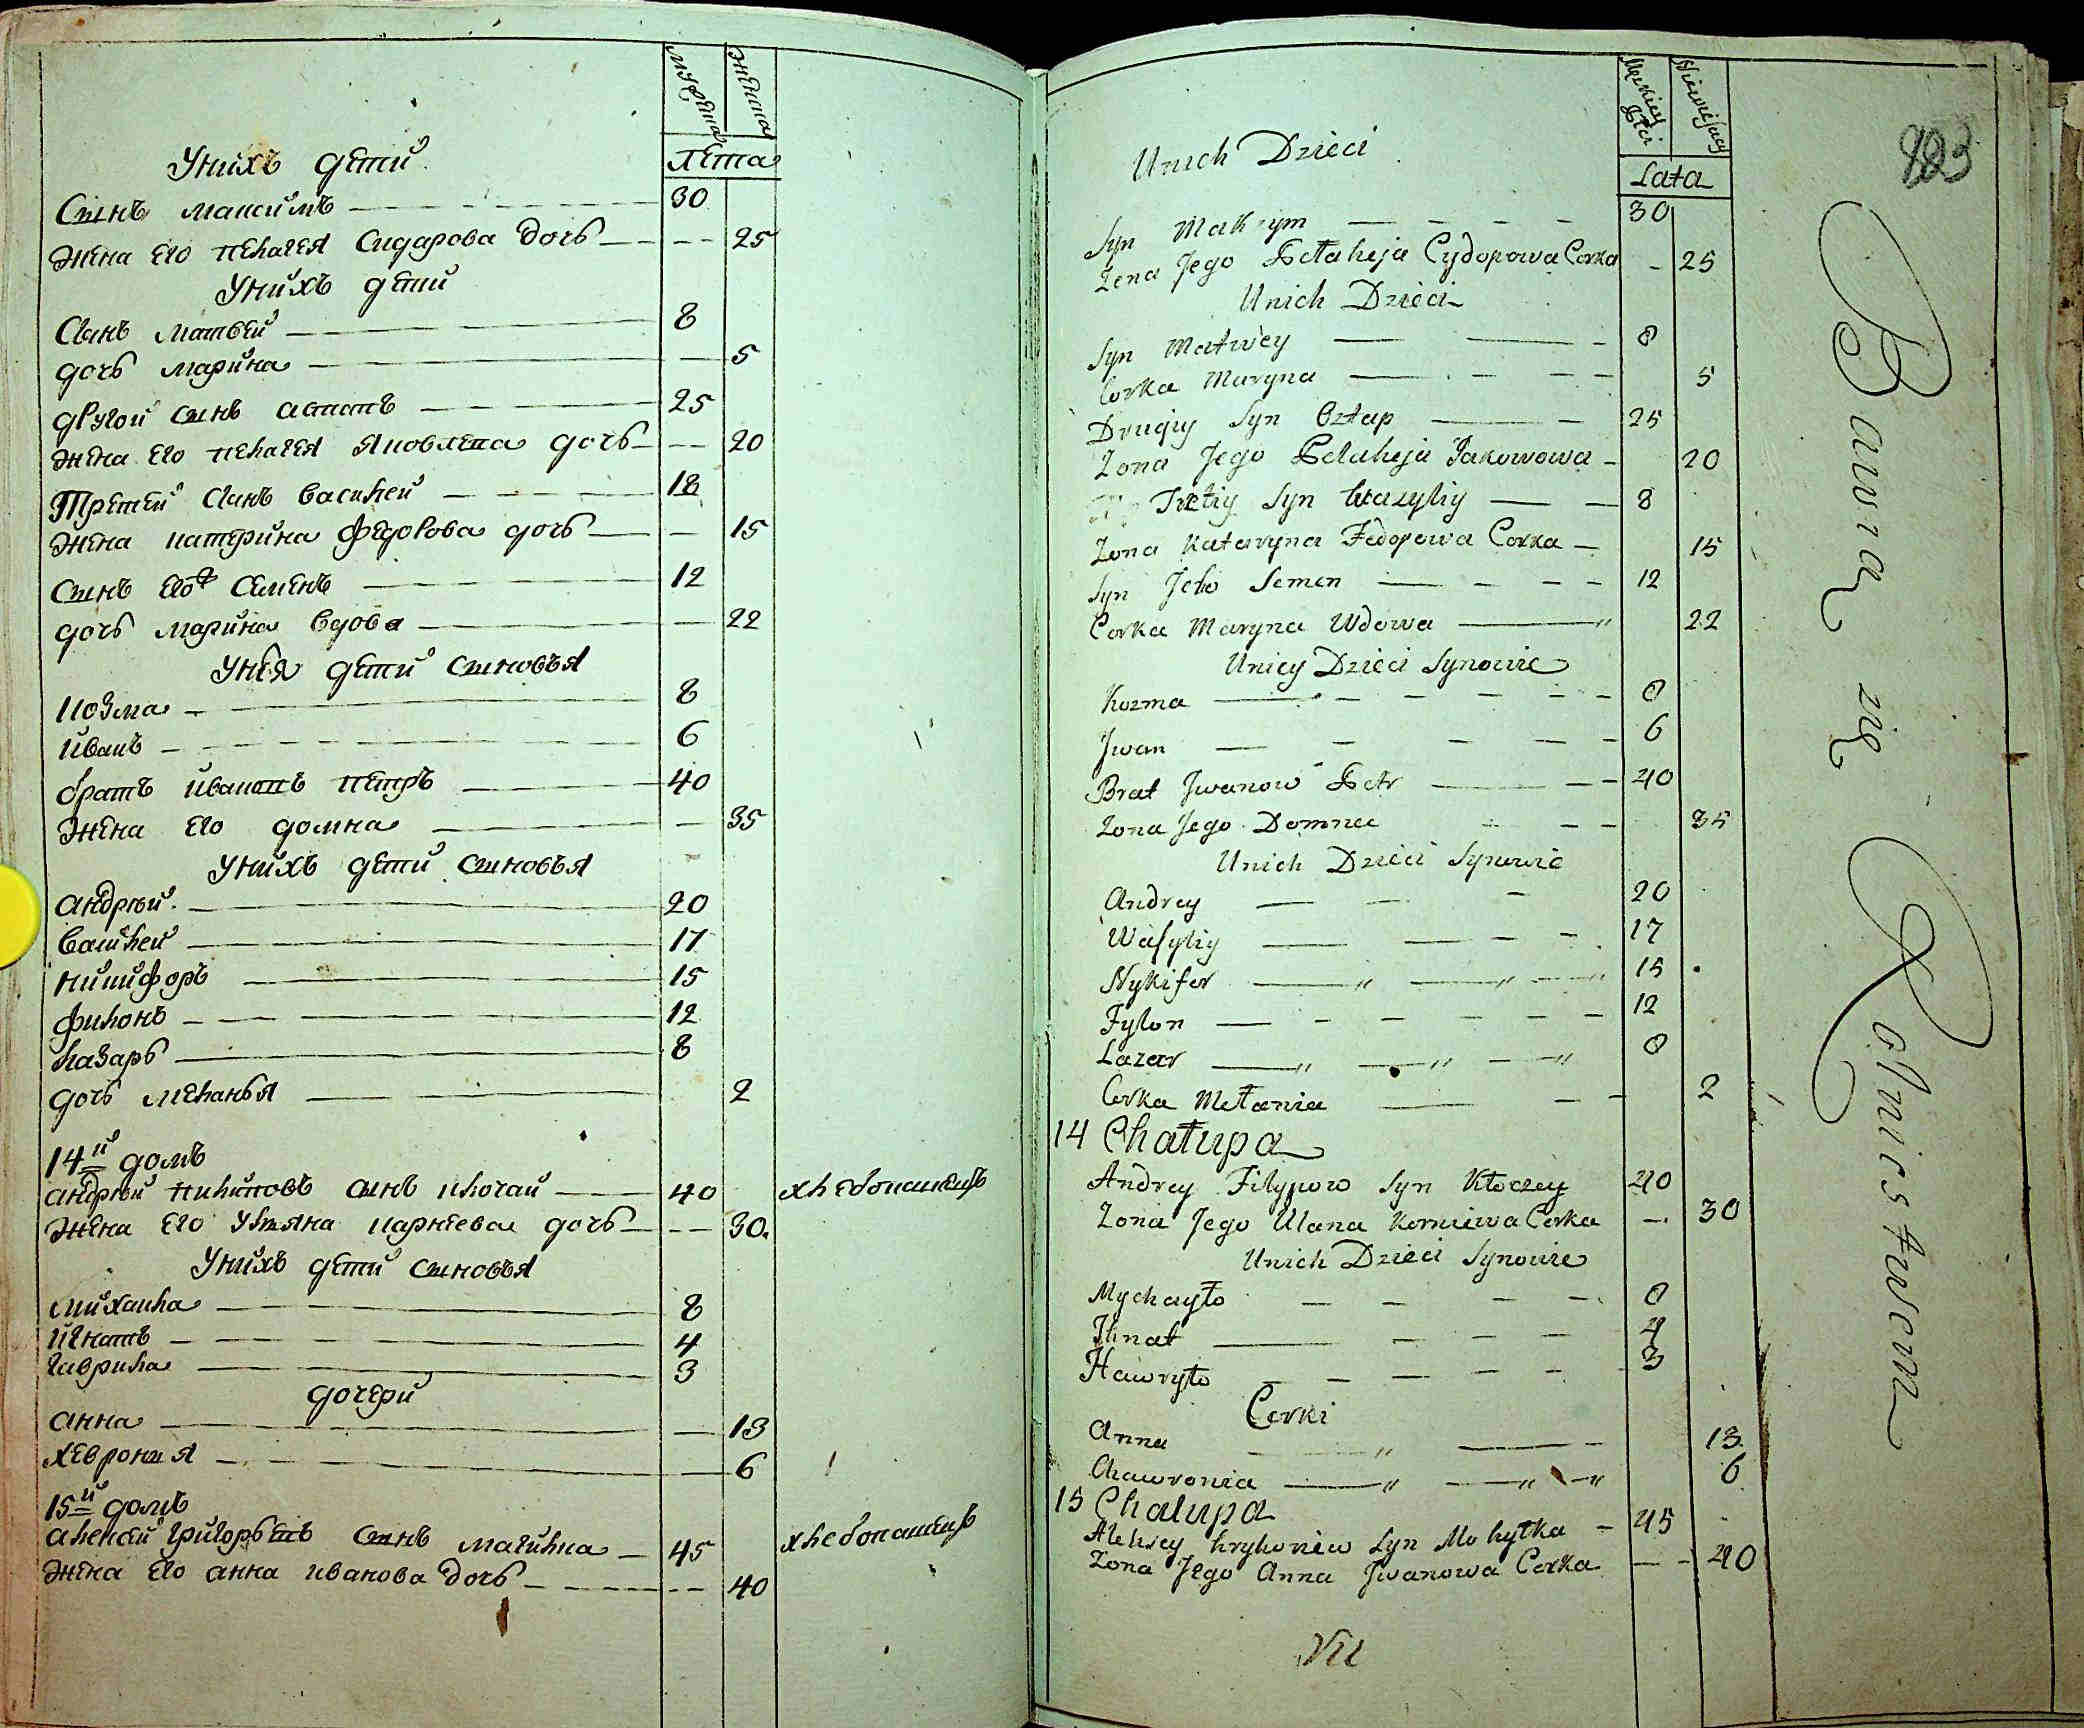 Мужеска
Женска
Лета
Унихъ дети
Сынъ максимъ 30
жена его пелагея Сидарова дочь 25
Унихъ дети
Сынъ матвей 8
дочь марина 5
другой сынъ астапъ 25
жена его пелагея яковлева дочь 20
Третей сынъ василей 18
жена катерина федорова дочь 15
сынъ его семенъ 12
дочь марина вдова 22
Унея дети сыновья
козма 8
иванъ 6
братъ ивановъ петръ 40
жена его домна 35
Унихъ дети сыновья
андрей 20
василей 17
никифоръ 15
филонъ 12
лазаръ 8
дочь меланья 2
14й домъ
андрей сынъ клочай 40 хлебопашецъ
жена его уляна карнеева дочь 30.
Унихъ дети сыновья
михаила 8
игнатъ 4
гаврила 3
дочери
анна 13
хеврония 6
15й домъ
алексей григорьевъ сынъ магилка 45 хлебопашецъ
жена его анна иванова дочь 40
183
Lata
Unich Dzieci
Syn Maksym 30
Żena Jego Pełaheja Cydorowa Corka 25
Unich Dzieci
Syn Matwey 8
Corka Maryna 5
Drugiy Syn Oztap 25
Zona Jego Pełaheja Jakowowa 20
Tretiy Syn Wazyliy 8
Zona Kataryna Fedorowa Corka 15
Syn Jeho Semen 12
Corka Maryna Wdowa 22
Unicy Dzieci Synowie
Kozma 8
Jwan 6
Brat Jwanow Petr 40
Zona Jego Domna 35
Unich Dzieci Synowie
Andrey 20
Wasyliy 17
Nykifor 15
Fylon 12
Lazar 8
Corka Mełania 2
14 Chałupa
Andrey Filypow Syn Kłoczey 40
Zona Jego Ulana Kornieiwa Corka 30
Unich Dzieci Synowie
Mychayło 8
Ihnat 4
Hawryło 3
Corki
Anna 13
Chawronia 6
15 Chałupa
Aleksey Hryhoriew Syn Mohyłka 45
Zona Jego Anna Jwanowa Corka 40
VII
Bawią się Rolnictwem